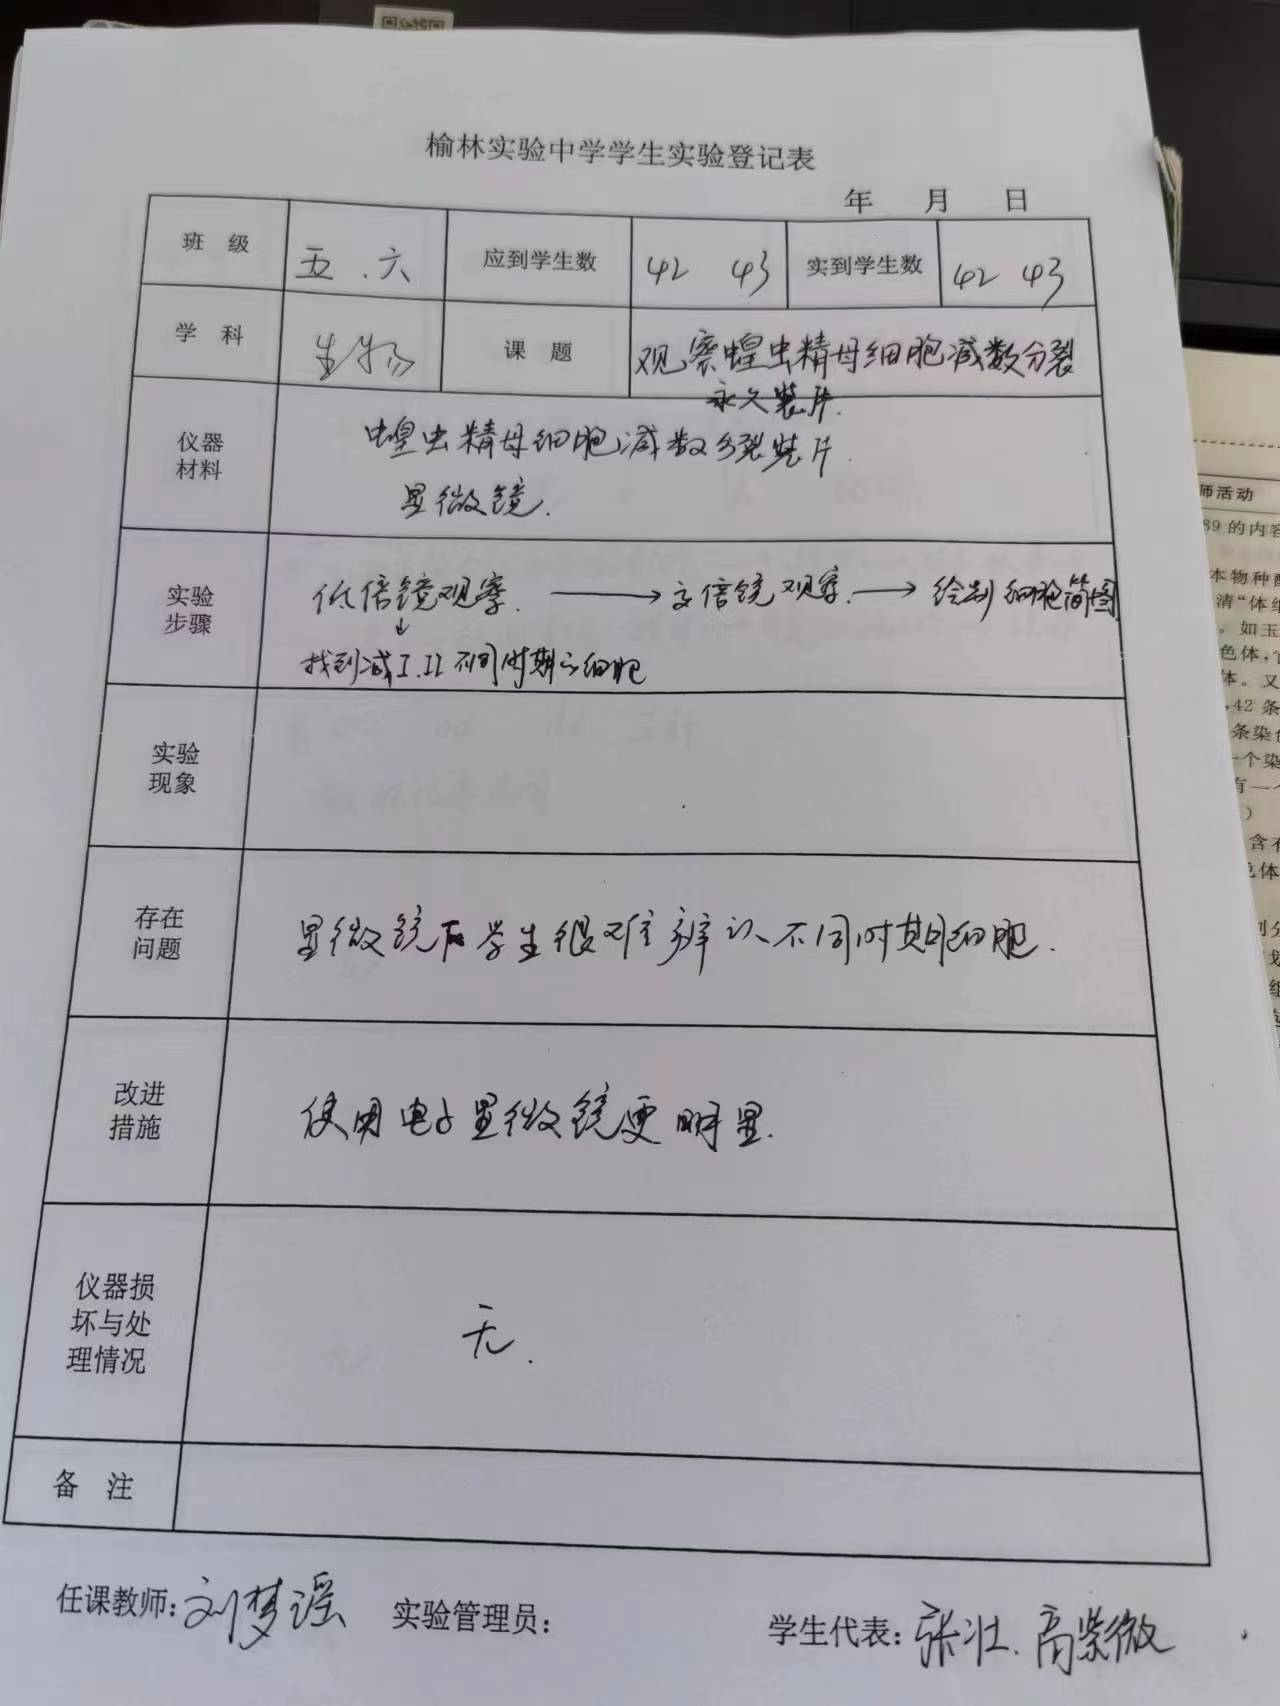 榆林实验中学学生实验登记表
年 月 日
班 级 五.六 应到学生数 42 43 实到学生数 42 43
学 科 生物 课 题 观察蝗虫精母细胞减数分裂
永久装片.
仪器
材料
蝗虫精母细胞减数分裂装片.
显微镜.
实验
步骤
低倍镜观察. → 高倍镜观察. → 绘制细胞简图
↓
找到减I.II不同时期的细胞
实验
现象
存在
问题
显微镜下学生很难辨认不同时期细胞.
改进
措施
使用电子显微镜更明显.
仪器损
坏与处
理情况
无.
备 注
任课教师:刘梦瑶 实验管理员: 学生代表:张壮.高紫微
师活动
89的内容
本物种
清“体细
。如玉
色体,
体。又
,42条
条染色
一个染
有一个
含有
色体